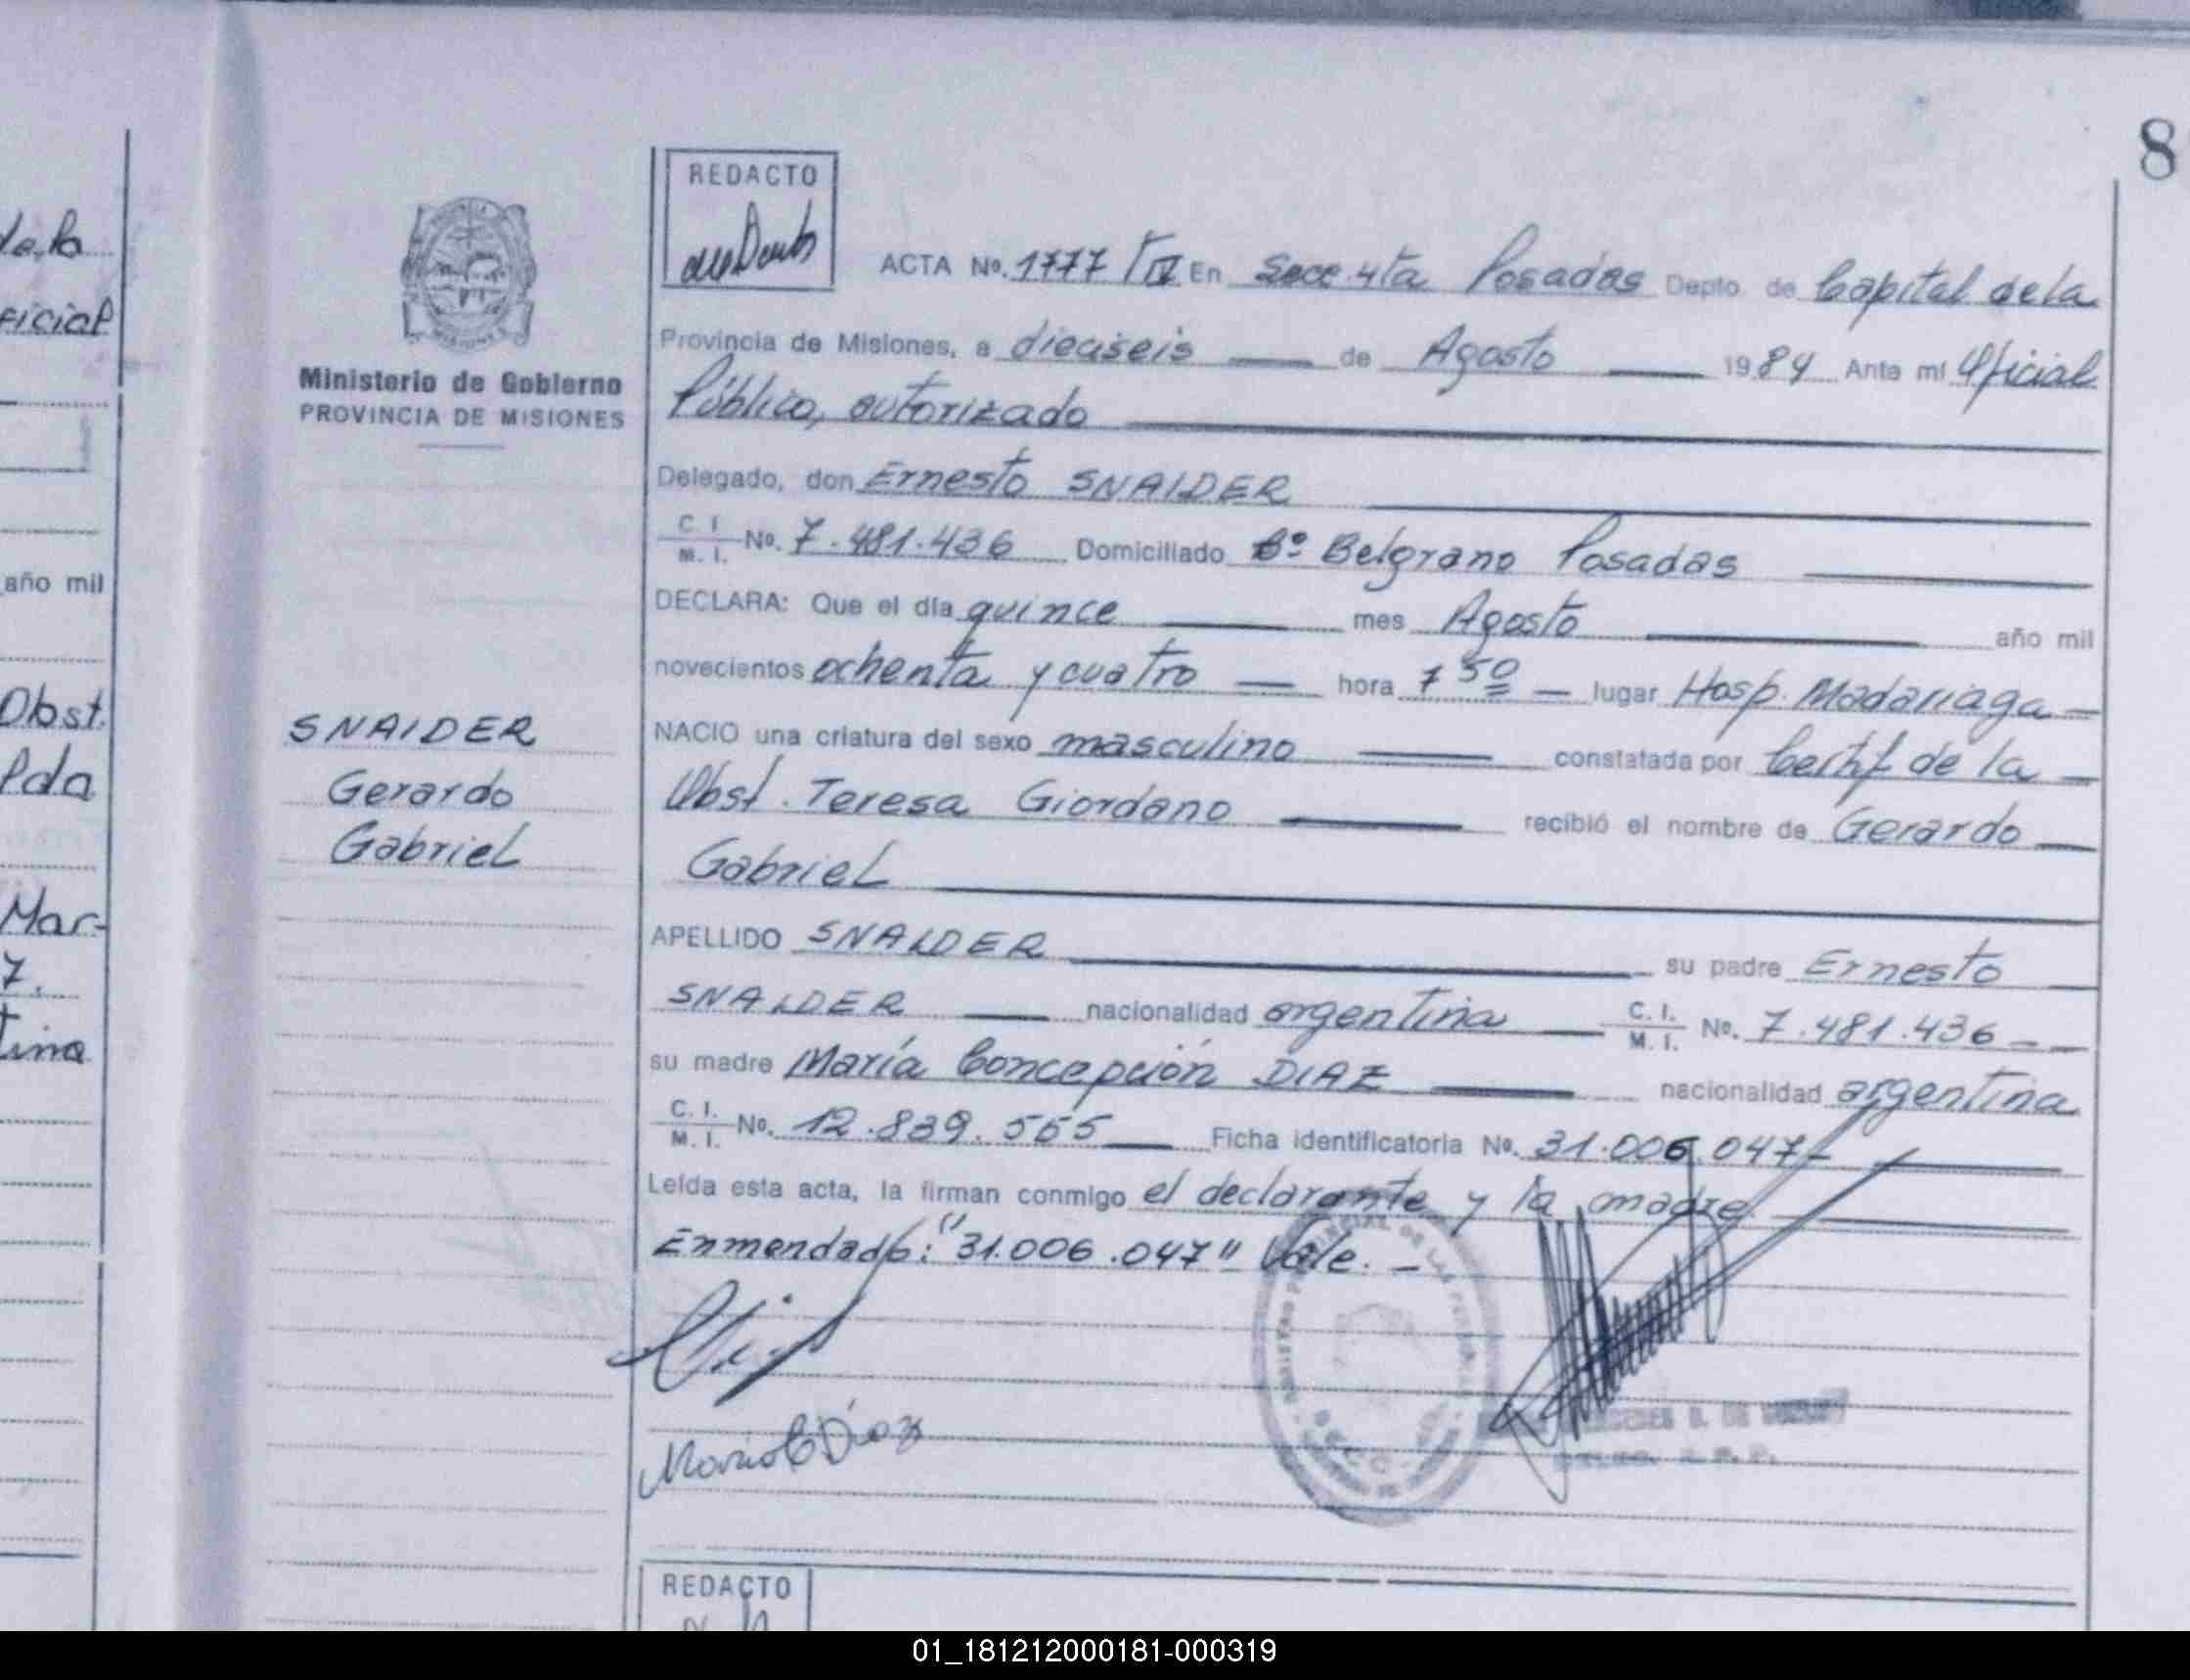 8
de la
ficial
año mil
Obst.
Pda
Mar-
7.
tina
Ministerio de Gobierno
PROVINCIA DE MISIONES
SNAIDER
Gerardo
Gabriel
REDACTO
ACTA No. 1777 T IV En Secc. 4ta Posadas Depto. de Capital de la
Provincia de Misiones, a dieciseis de Agosto 1984 Ante mí Oficial
Público, autorizado
Delegado, don Ernesto SNAIDER
C. I. M. I. No. 7.481.436 Domiciliado Bº Belgrano Posadas
DECLARA: Que el día quince mes Agosto año mil
novecientos ochenta y cuatro hora 7 50 lugar Hosp. Madariaga
NACIO una criatura del sexo masculino constatada por Certif de la
Obst. Teresa Giordano recibió el nombre de Gerardo
Gabriel
APELLIDO SNAIDER su padre Ernesto
SNAIDER nacionalidad argentina C. I. M. I. No. 7.481.436
su madre María Concepción DIAZ nacionalidad argentina
C. I. M. I. No. 12.839.565 Ficha identificatoria No. 31.006.047
Leída esta acta, la firman conmigo el declarante y la madre
Enmendado: "31.006.047" Vale. -
Maria C Diaz
REDACTO
01_181212000181-000319